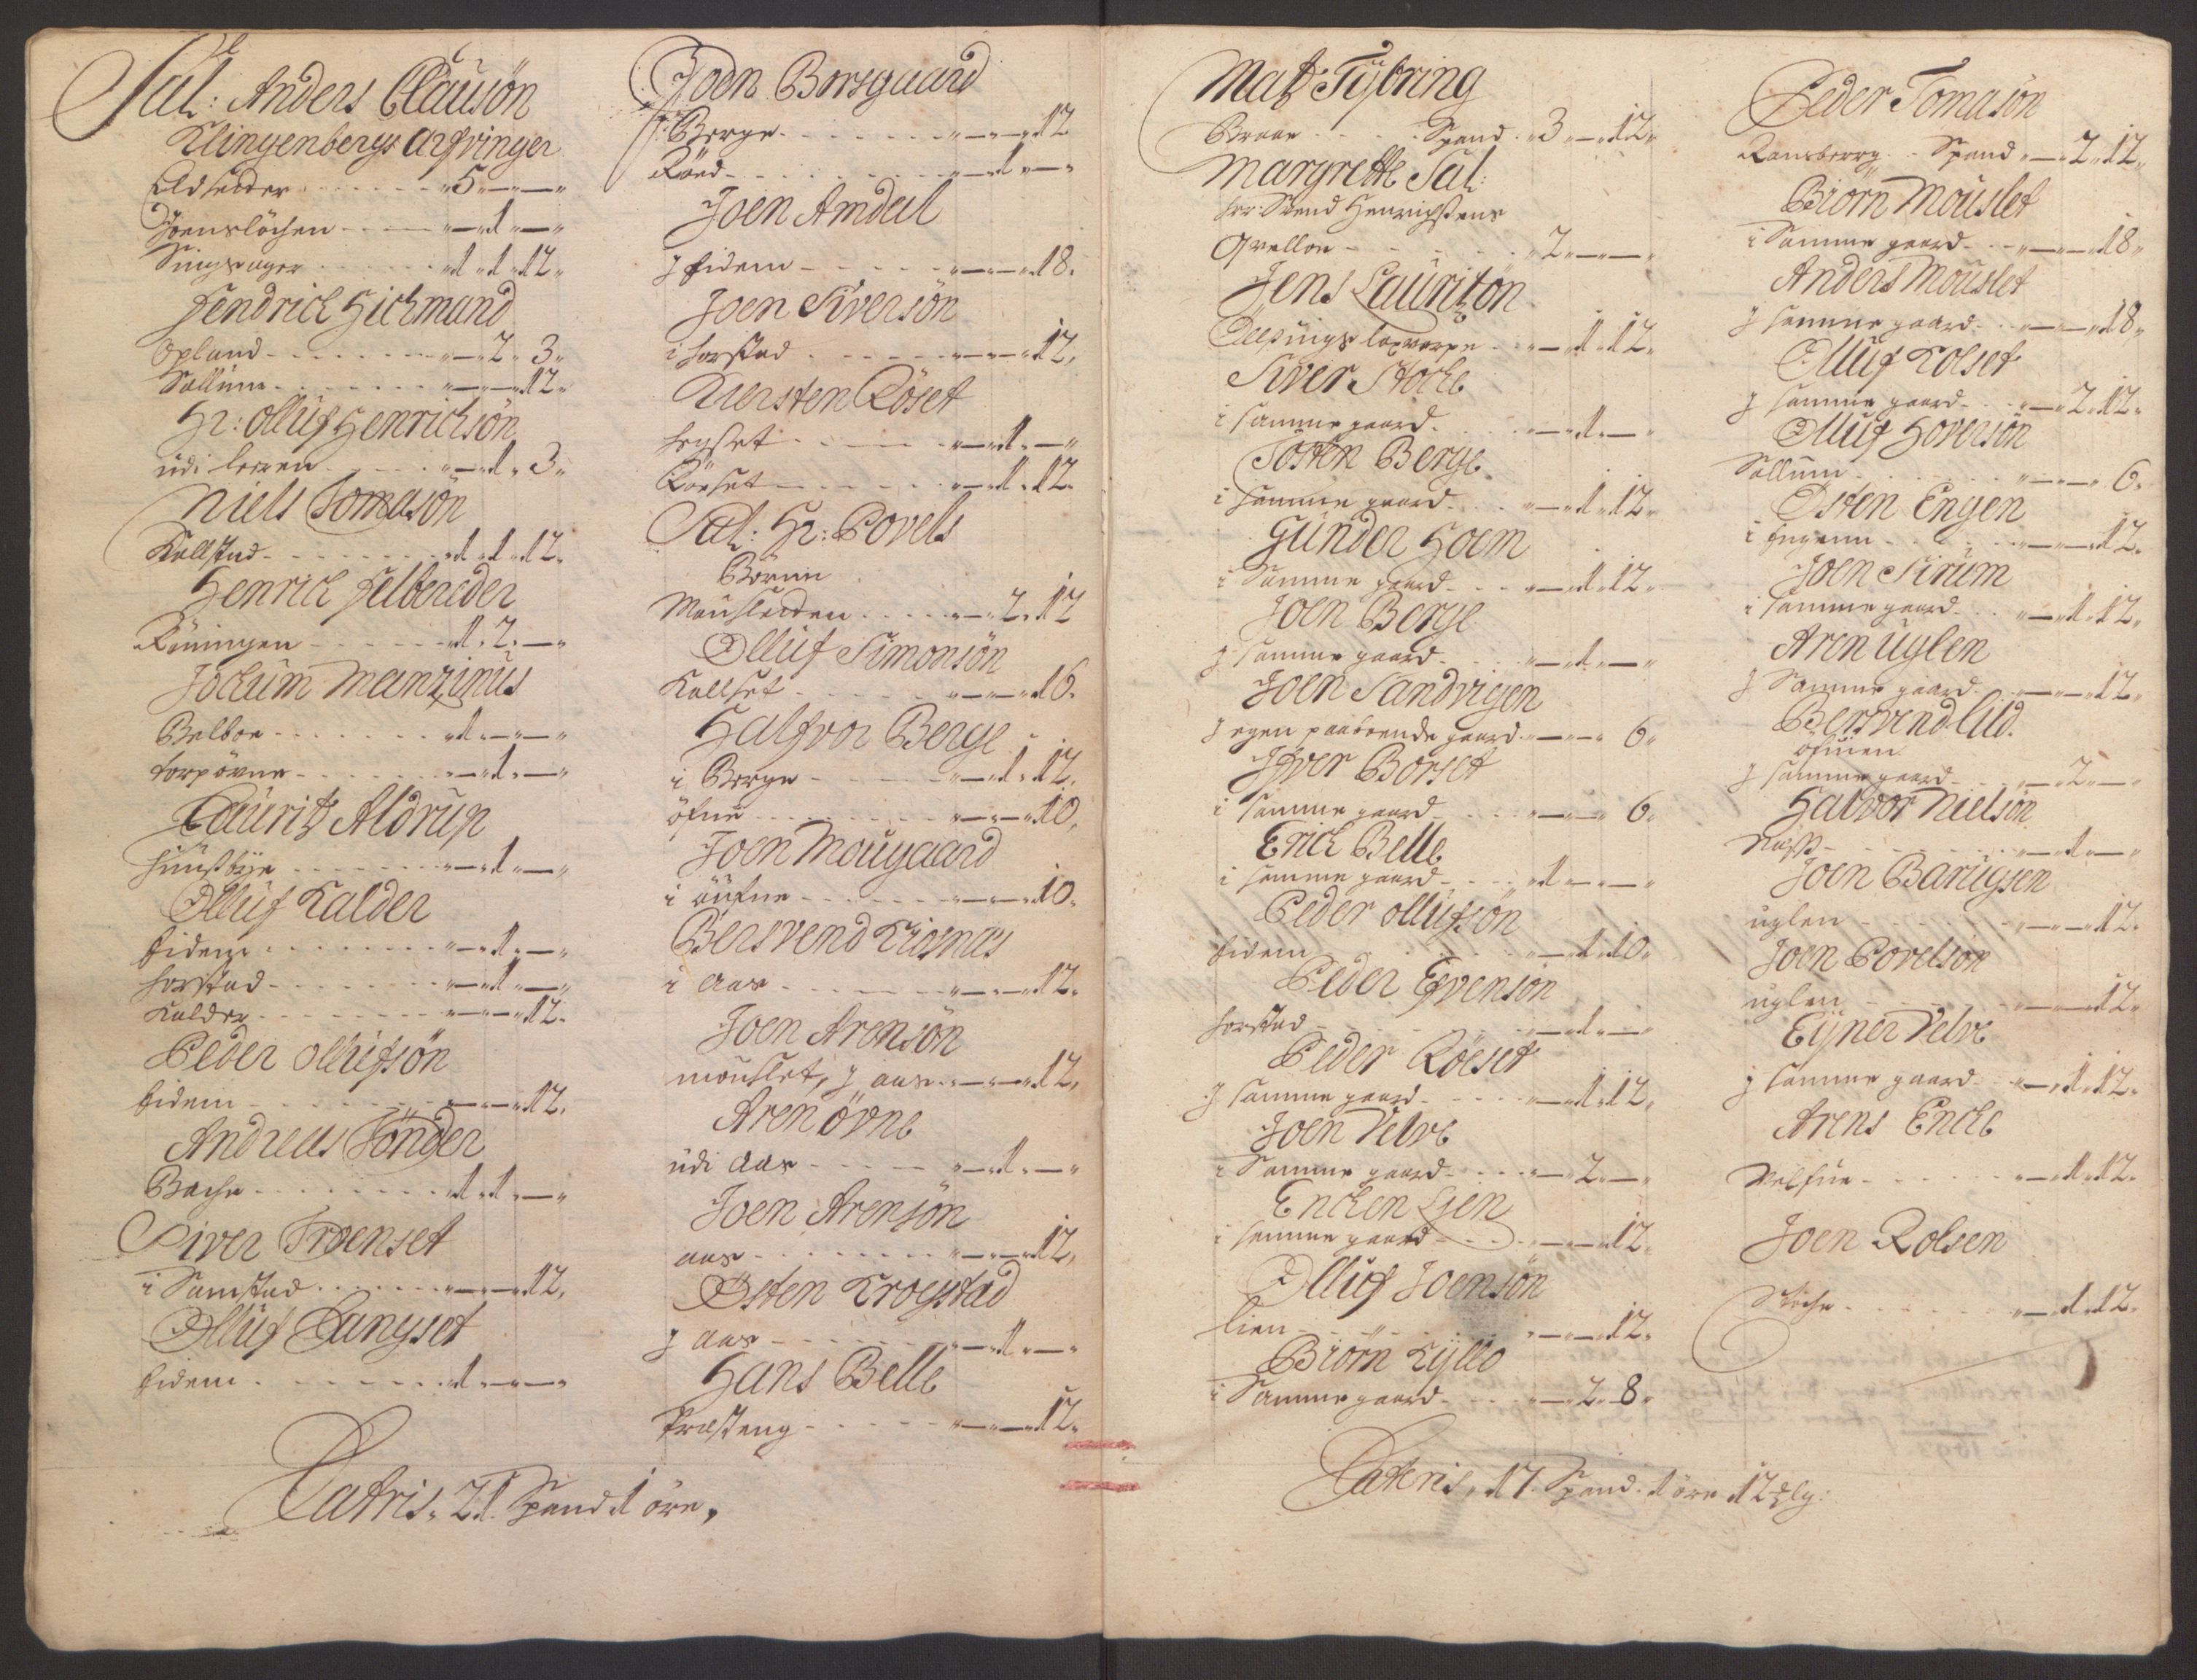 Sal: Anders Clausön
Klingenbergs Arfvinger
Eldsedder - - - " 5 " — " — "
Joenslöchen - - - " — " 1 " — "
Singsager - - - " 1 " 1 " 12 "
Hendrich Hichmand
Opland - - - " — " 2 " 3 "
Sollüm - - - " — " — " 12 "
Hr: Ollüf Henrichsön
udi leeren - - - " — " 1 " 3 "
Niels Tomasön
Kollstad - - - " 1 " 1 " 12 "
Henrich Helbereder
Röningen - - - " 1 " 2 " — "
Jochum Manzinus
Belboe - - - " 1 " — " — "
torpövne - - - " — " 1 " — "
Lauritz Aldrup
Hunstbye - - - " — " 1 " — "
Ollüf Kalder
Eidem - - - " — " 1 " — "
Horstad - - - " — " 1 " — "
Kalder - - - " — " — " 12 "
Peder Ollüfsön
Eidem - - - " — " — " 12 "
Andreas Tönder
Bache - - - " 1 " 1 " — "
Siver Troenset
i Samstad - - - " — " — " 12 "
Ollüf Langset
Eidem - - - " 1 " — " — "
Latris, 21 Spand 1 öre,
Joen Borsgaard
Berge - - - " — " — " 12
Röed - - - " — " 1 " — "
Joen Amdal
J Eidem - - - " — " — " 18 "
Joen Siversön
i Horstad - - - " — " — " 12 "
Kiersten Röset
Hegset - - - " — " 1 " — "
Röeset - - - " — " 1 " 12 "
Sal: Hr: Povels
Börnn
Mousletten - - - " — " 2 " 12
Ollüf Simonsön
Kollset - - - " — " — " 16 "
Halfvor Berge
i Berge - - - " — " 1 " 12 "
öfne - - - " — " — " 10 "
Joen Mougaard
i öüfne - - - " — " — " 10 "
Bersvend Kiösnæs
i Aas - - - " — " — " 12 "
Joen Arensön
mouslet, J aas - - - " — " — " 12 "
Aren Övne
udi Aas - - - " — " 1 " — "
Joen Arensön
aas - - - " — " — " 12 "
Østen Krogstad
J aas - - - " — " 1 " — "
Hans Belle
Præsteng - - - " — " — " 12 "
Matz Tybring
Braae - - - Spand " 3 " — " 12 "
Margrette Sal:
Hr: Svend Henrichsens
Grelloe - - - " 2 " — " — "
Jens Lauritzön
laxverpe - - - " — " 1 " 12 "
Siver Stocke
i samme gaard - - - " — " 1 " — "
Tosten Berge
i samme gaard - - - " — " 1 " 12 "
Günder Hoem
i Samme gaard - - - " — " 1 " 12 "
Joen Berge
J samme gaard - - - " — " 1 " — "
Joen Sandvigen
J egen paaboende gaard - " — " — " 6 "
Jfver Borset
i samme gaard - - - " — " — " 6 "
Erich Belle
i samme gaard - - - " 1 " — " — "
Peder Ollüfsön
Eidem - - - " — " 1 " 10 "
Peder Efvensön
Horstad - - - " — " 1 " — "
Peder Röeset
J samme gaard - - - " — " 1 " 12 "
Joen Velve
i Samme gaard - - - " — " 2 " — "
Enchen Lien
i samme gaard - - - " — " — " 12 "
Ollüf Joensön
lien - - - " — " — " 12 "
Biörn Kyllo
i Samme gaard - - - " — " 2 " 8 "
Lateris, 17 Spand 1 öre 12 Mlg:
Peder Tomasön
Ramberrg - - Spand " — " 2 " 12 "
Biörn Mouslet
i Samme gaard - - " — " — " 18 "
Anders Mouslet
J samme gaard - - " — " — " 18 "
Ollüf Kolset
J samme gaard - - " — " 2 " 12 "
Ollüf Hoversön
Sollüm - - - " — " — " 6 "
Østen Engen
i Engenn - - - " — " — " 12 "
Joen Sirüm
i samme gaard - - " — " 1 " 12 "
Aren uglen
J Samme gaard - - " — " — " 12 "
Bersvend Lild.
öfuen
J samme gaard - - " — " 2 " — "
Halvor Nielsön
Næss - - - " — " 1 " — "
Joen Barügsen
uglen - - - " — " — " 12 "
Joen Povelsön
uglen - - - " — " — " 12 "
Eyner Velve
J samme gaard - - " — " 1 " 12 "
Arens Encke
Velfue - - - " — " 1 " 12 "
Joen Rolsen
Stoche - - - " — " 1 " 12 "